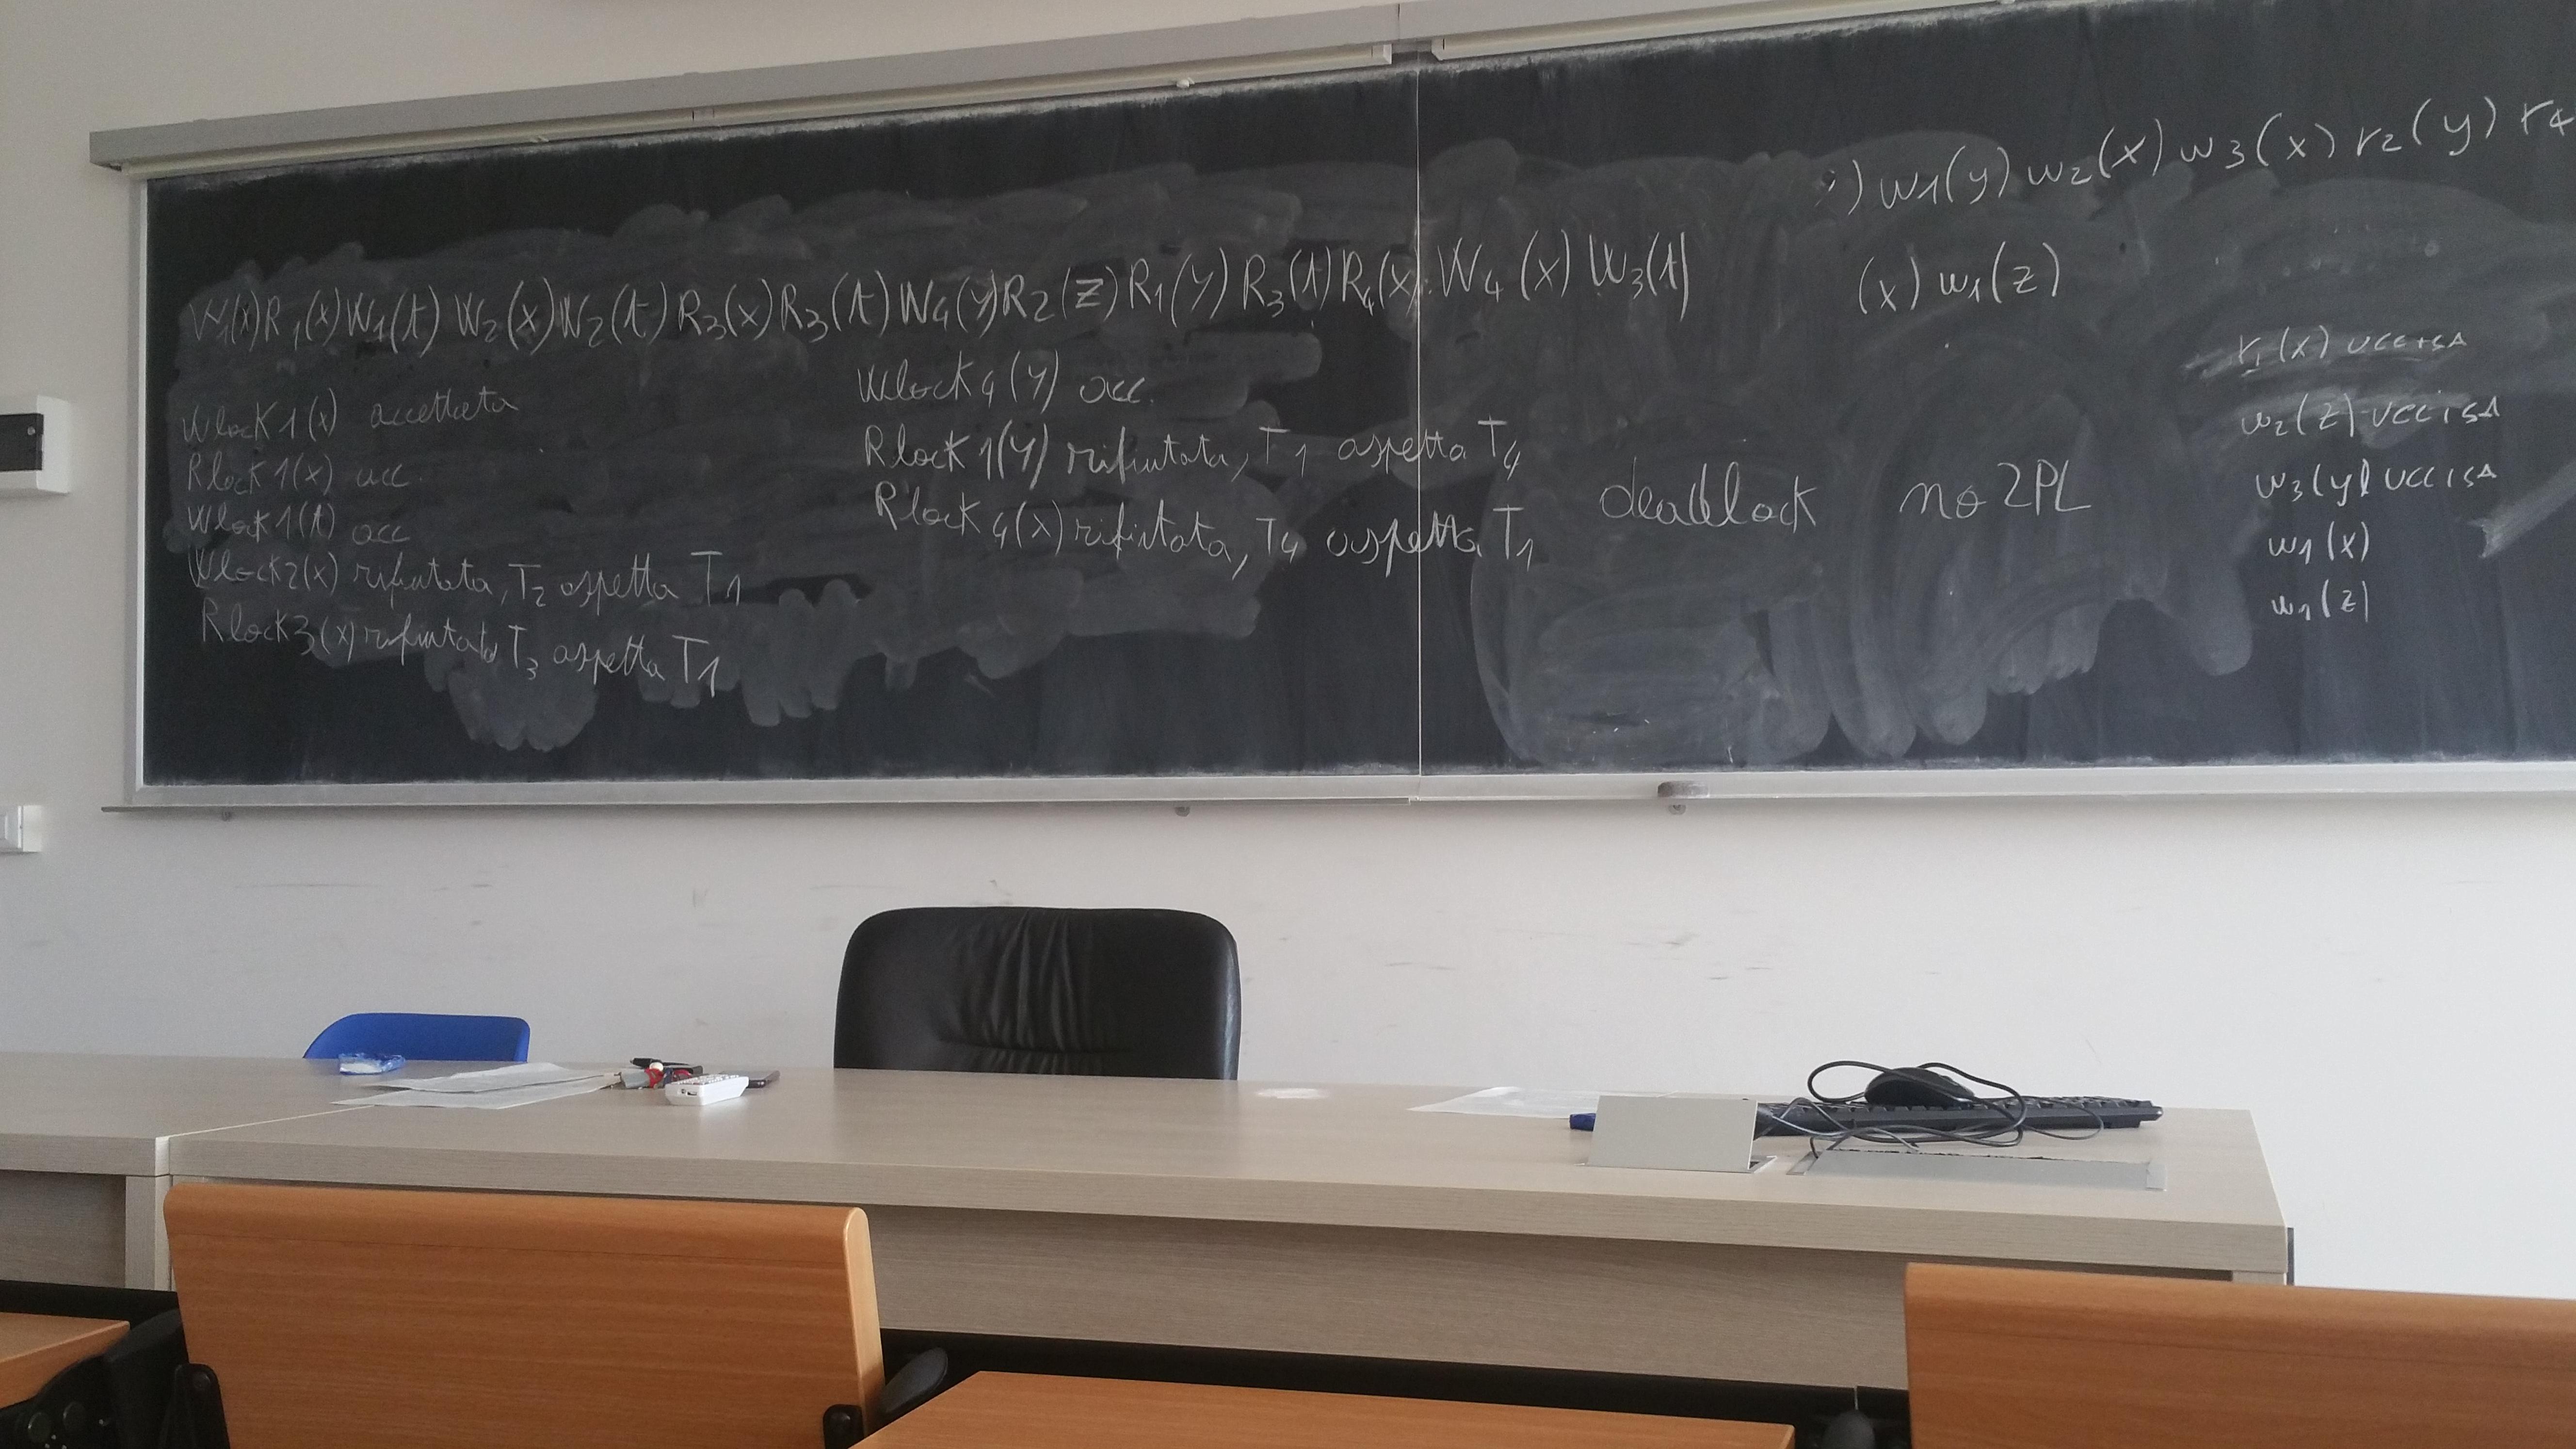 W1(x)R1(x)W1(t) W2(x)W2(t) R3(x)R3(t)W4(y)R2(z)R1(y)R3(t)R4(x) W4(x) W3(t)
Wlock1(x) accettata
Rlock1(x) acc.
Wlock1(t) acc
Wlock2(x) rifiutata, T2 aspetta T1
Rlock3(x) rifiutata T3 aspetta T1
Wlock4(y) acc.
Rlock1(y) rifiutata, T1 aspetta T4
Rlock4(x) rifiutata, T4 aspetta T1
deadlock no 2PL
) w1(y) w2(x) w3(x) r2(y) r4
(x) w1(z)
r1(x) UCCISA
w2(z) UCCISA
w3(y) UCCISA
w1(x)
w1(z)